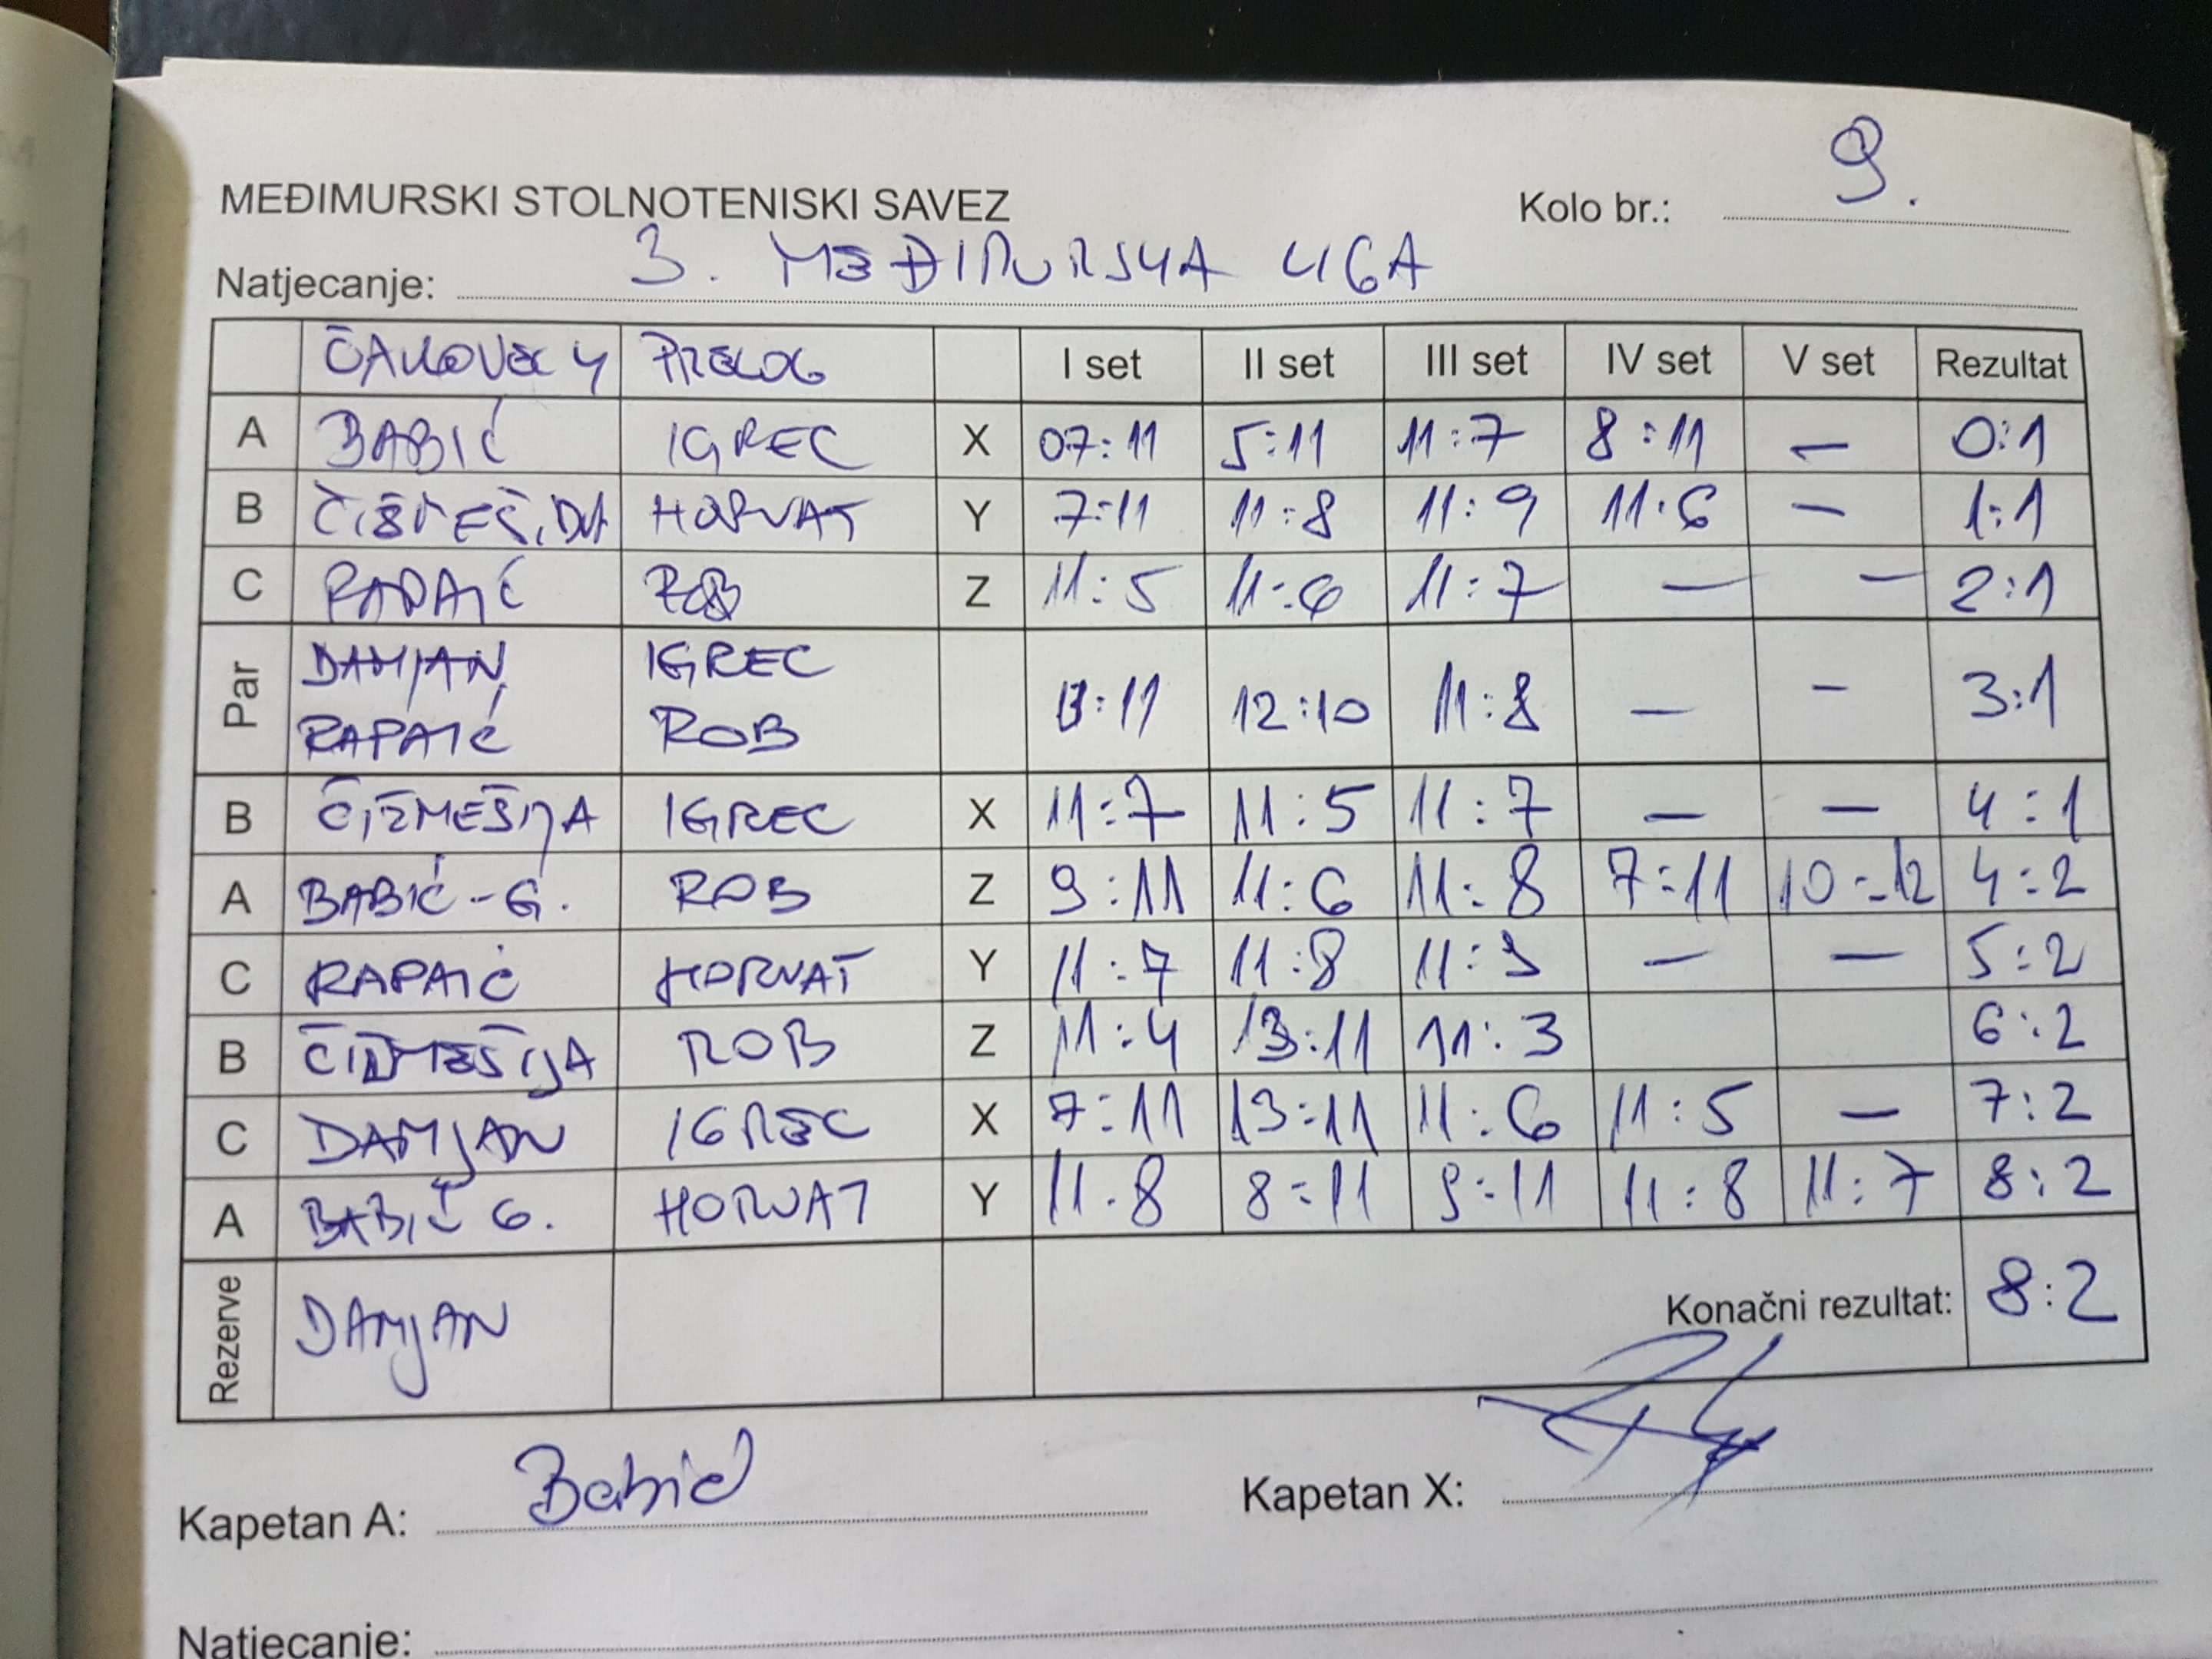 MEĐIMURSKI STOLNOTENISKI SAVEZ Kolo br.: 9.
Natjecanje: 3. MEĐIMURSKA LIGA
ČAKOVEC 4 PRELOG I set II set III set IV set V set Rezultat
A BABIĆ IGREC X 07:11 5:11 11:7 8:11 – 0:1
B HORVAT Y 7:11 11:8 11:9 11:6 – 1:1
C RAPAIĆ ROB Z 11:5 11:6 11:7 – – 2:1
Par DAMJAN, IGREC
RAPAIĆ ROB 13:11 12:10 11:8 – – 3:1
B ČIŽMEŠIJA IGREC X 11:7 11:5 11:7 – – 4:1
A BABIĆ-G. ROB Z 9:11 11:6 11:8 7:11 10:12 4:2
C RAPAIĆ HORVAT Y 11:7 11:8 11:9 – – 5:2
B ČIŽMEŠIJA ROB Z 11:4 13:11 11:3 6:2
C DAMJAN IGREC X 7:11 13:11 11:6 11:5 – 7:2
A BABIĆ G. HORVAT Y 11:8 8:11 9:11 11:8 11:7 8:2
Rezerve DAMJAN Konačni rezultat: 8:2
Kapetan A: Babić Kapetan X:
Natjecanje: